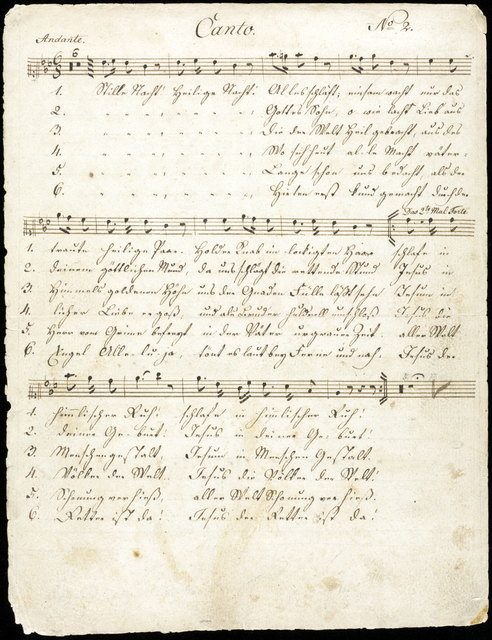 Canto. No 2.
Andante.
6
1. Stille Nacht! Heilige Nacht! Alles schläft; einsam wacht nur das
2. " " " " " " Gottes Sohn, o wie lacht Lieb aus
3. " " " " " " Die der Welt Heil gebracht, aus des
4. " " " " " " Wo sich heut alle Macht väter-
5. " " " " " " Lange schon uns bedacht als der
6. " " " " " " Hirten erst kund gemacht durch der
Das 2te Mal Forte
1. traute heilige Paar. Holder Knab im lockigten Haar schlafe in
2. deinem göttlichen Mund, da uns schlägt die rettende Stund Jesus in
3. Himmels goldenen Höhn uns der Gnaden Fülle läßt sehn Jesum in
4. licher Liebe ergoß, und als Bruder huldvoll umschloß Jesus die
5. Herr vom Grime befreyt in der Väter urgrauer Zeit aller Welt
6. Engel Alle lu ja, tönt es laut bey Ferne und nah, Jesus der
1. himmlischer Ruh! schlafe in himlischer Ruh!
2. deiner Ge- burt! Jesus in deiner Ge- burt!
3. Menschengestalt. Jesum in Menschengestalt.
4. Völker der Welt. Jesus die Völker der Welt!
5. Schonung verhieß. aller Welt Schonung verhieß.
6. Retter ist da! Jesus der Retter ist da!